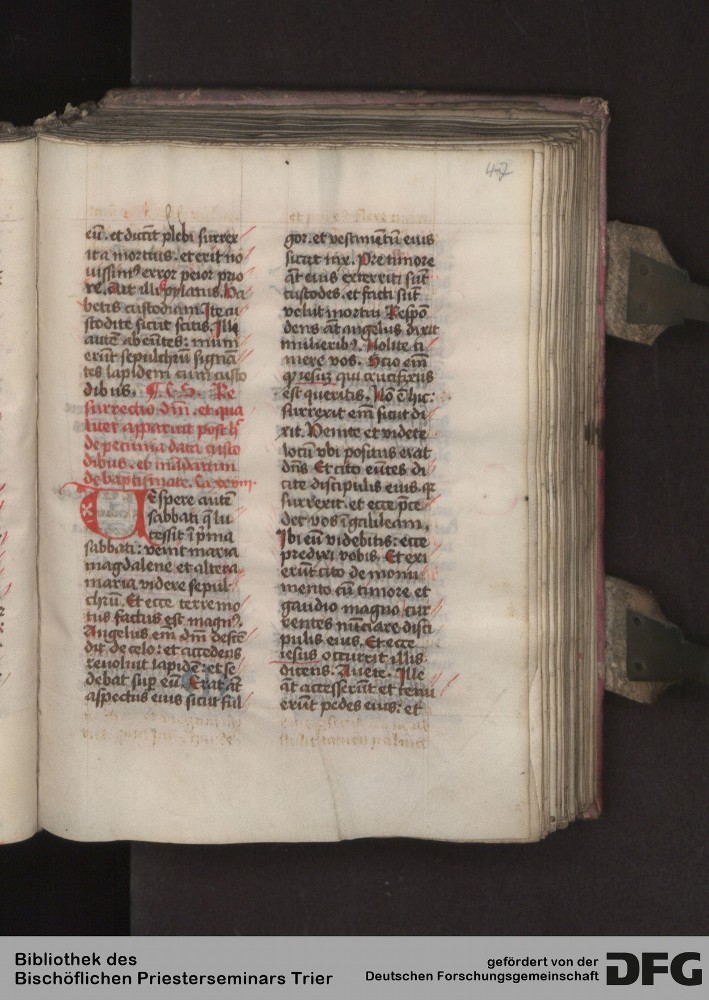 47
eū. et dicāt plebi surrex
it a mortuis. et erit no
uissimꝰ error peior prio
re. Ait illis pylatus. Ha
betis custodiam. Ite cu
stodite sicut scitis. Illi
autē abeūtes: muni
erūt sepulchrū signan
tes lapidem cum custo
dibus.
surrectio dn̄i. et qua
liter apparuit post h̄
de pecunia data custo
dibus. et mādatum
de baptismate.
Vespere autē
sabbati q̄ lu
cessit ī pͥma
sabbati: venit maria
magdalene et altera
maria videre sepul
chrū. Et ecce terremo
tus factus est magnꝰ.
Angelus em̄ dn̄i descē
dit de celo: et accedens
reuoluit lapidē: et se
debat suꝑ eū. Erat āt
aspectus eius sicut ful
gor. et vestimentū eius
sicut nix. Pre timore
āt eius exterriti sūt
custodes. et facti sūt
velut mortui. Respō
dens āt angelus dixit
mulieribꝫ. Nolite ti
mere vos. Scio em̄
qꝫ iesuꝫ qui crucifixus
est queritis. Nō ē hic:
surrexit em̄ sicut di
xit. Venite et videte
locū vbi positus erat
dn̄s. Et cito eūtes di
cite discipulis eius qꝫ
surrexit. et ecce p̄ce
det vos ī galileam.
Ibi eū videbitis: ecce
predixi vobis. Et exi
erūt cito de monu
mento cū timore et
gaudio magno cur
rentes nūciare disci
pulis eius. Et ecce
iesus occurrit illis
dicens. Auete. Ille
āt accesserūt et tenu
erūt pedes eius: et
Bibliothek des
Bischöflichen Priesterseminars Trier
gefördert von der
Deutschen Forschungsgemeinschaft
DFG